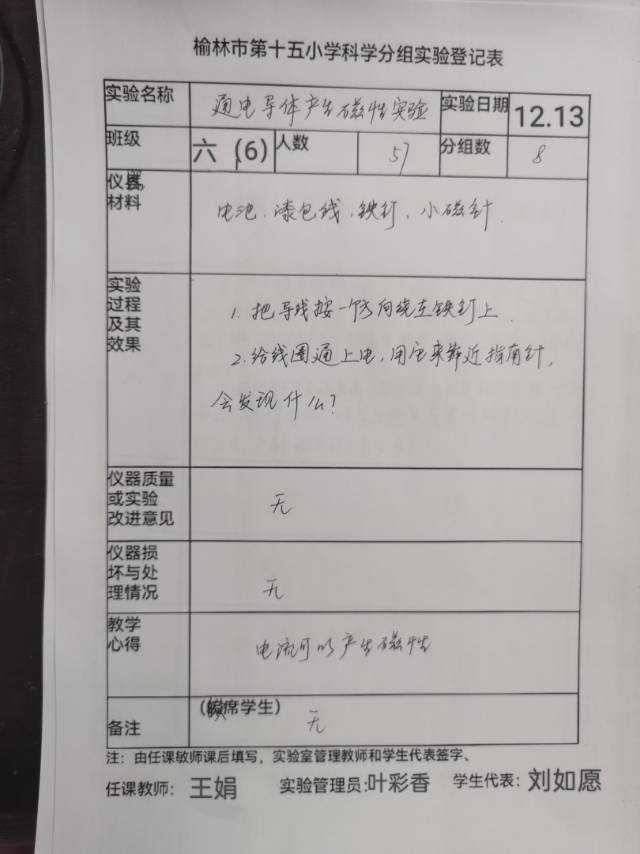 榆林市第十五小学科学分组实验登记表
实验名称 通电导体产生磁性实验 实验日期 12.13
班级 六 (6) 人数 57 分组数 8
仪器
材料
电池、漆包线、铁钉、小磁针
实验
过程
及其
效果
1. 把导线按一个方向绕在铁钉上
2. 给线圈通上电,用它来靠近指南针,
会发现什么?
仪器质量
或实验
改进意见
无
仪器损
坏与处
理情况
无
教学
心得
电流可以产生磁性
备注
(缺席学生)
无
注:由任课敏师课后填写,实验室管理教师和学生代表签字、
任课教师: 王娟 实验管理员:叶彩香 学生代表: 刘如愿